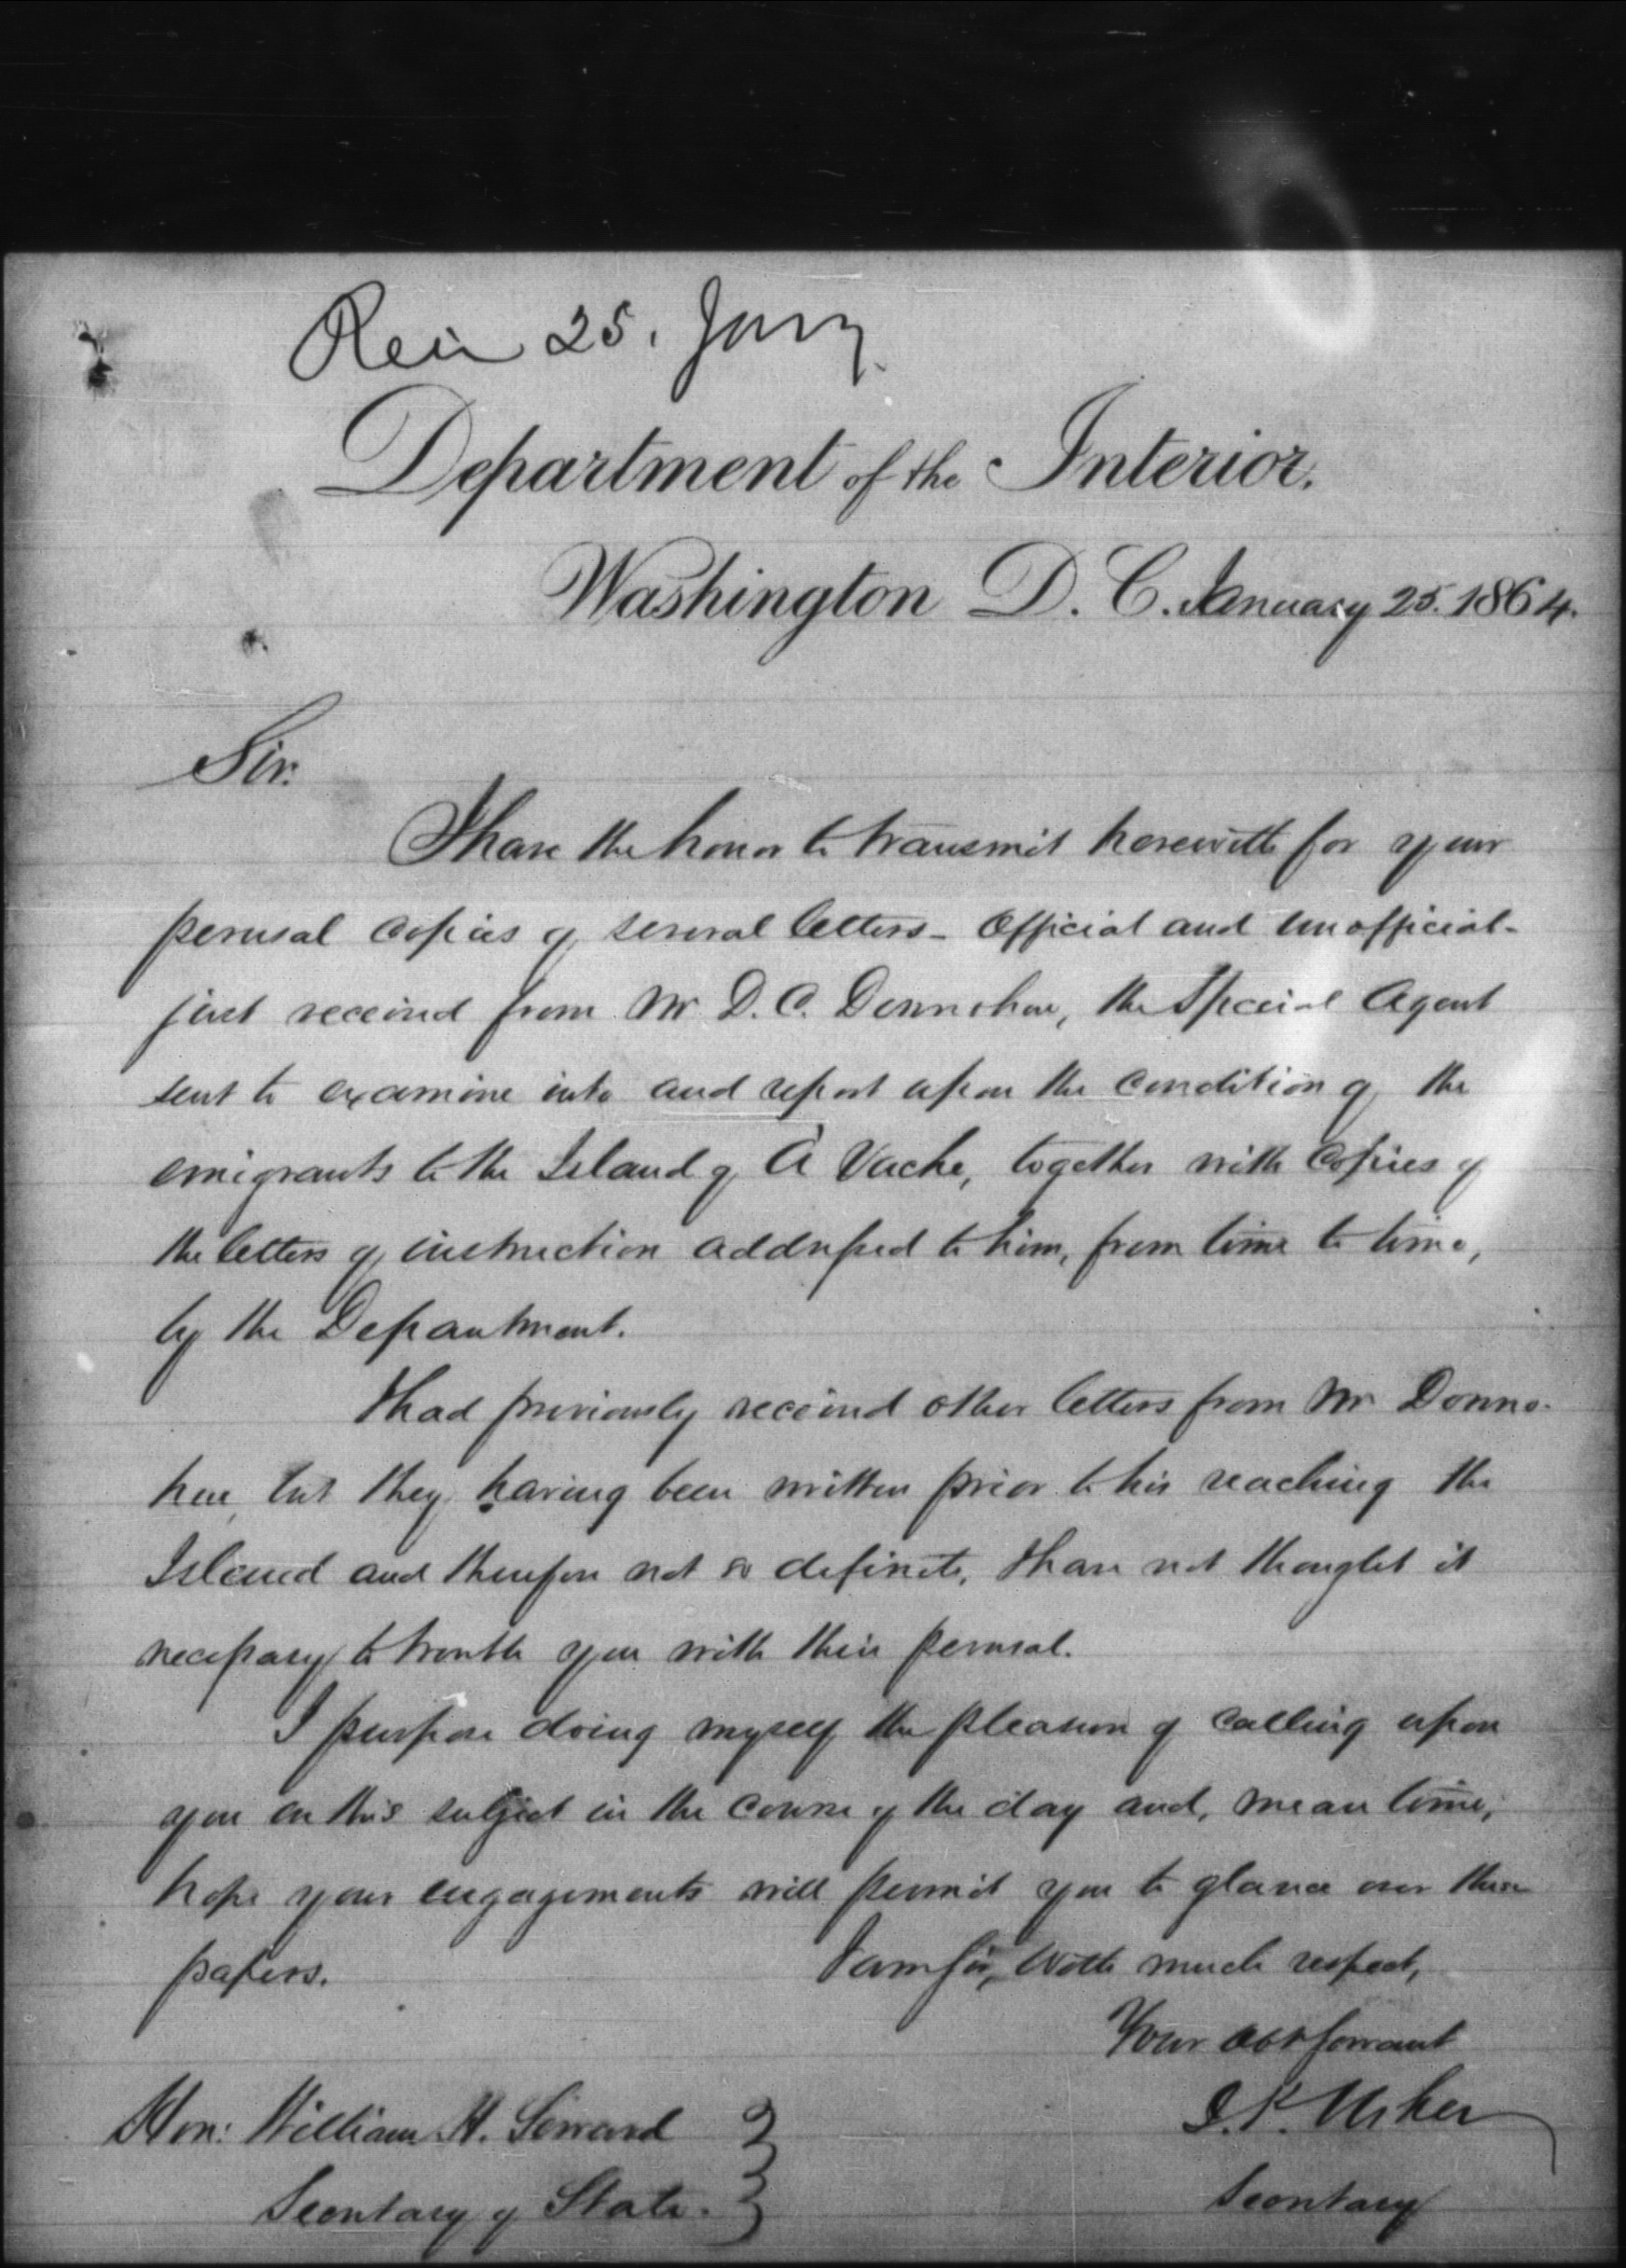 Rec'd 25. Jany
Department of the Interior,
Washington D. C. January 25. 1864.
Sir:
I have the honor to transmit herewith for your
perusal copies of several letters - Official and unofficial -
just received from Mr D. C. Donnohue, the Special Agent
sent to examine into and report upon the condition of the
emigrants to the Island of A' Vache, together with Copies of
the letters of instruction addressed to him, from time to time,
by the Department.
I had previously received other letters from Mr Donno-
hue, but they having been written prior to his reaching the
Island and therefore not so definite, I have not thought it
necessary to trouble you with their perusal.
I purpose doing myself the pleasure of calling upon
you on this subject in the course of the day and, mean time,
hope your engagements will permit you to glance over these
papers. I am Sir, With much respect,
Your obt Servant
J. P. Usher
Secretary
Hon: William H. Seward
Secretary of State.